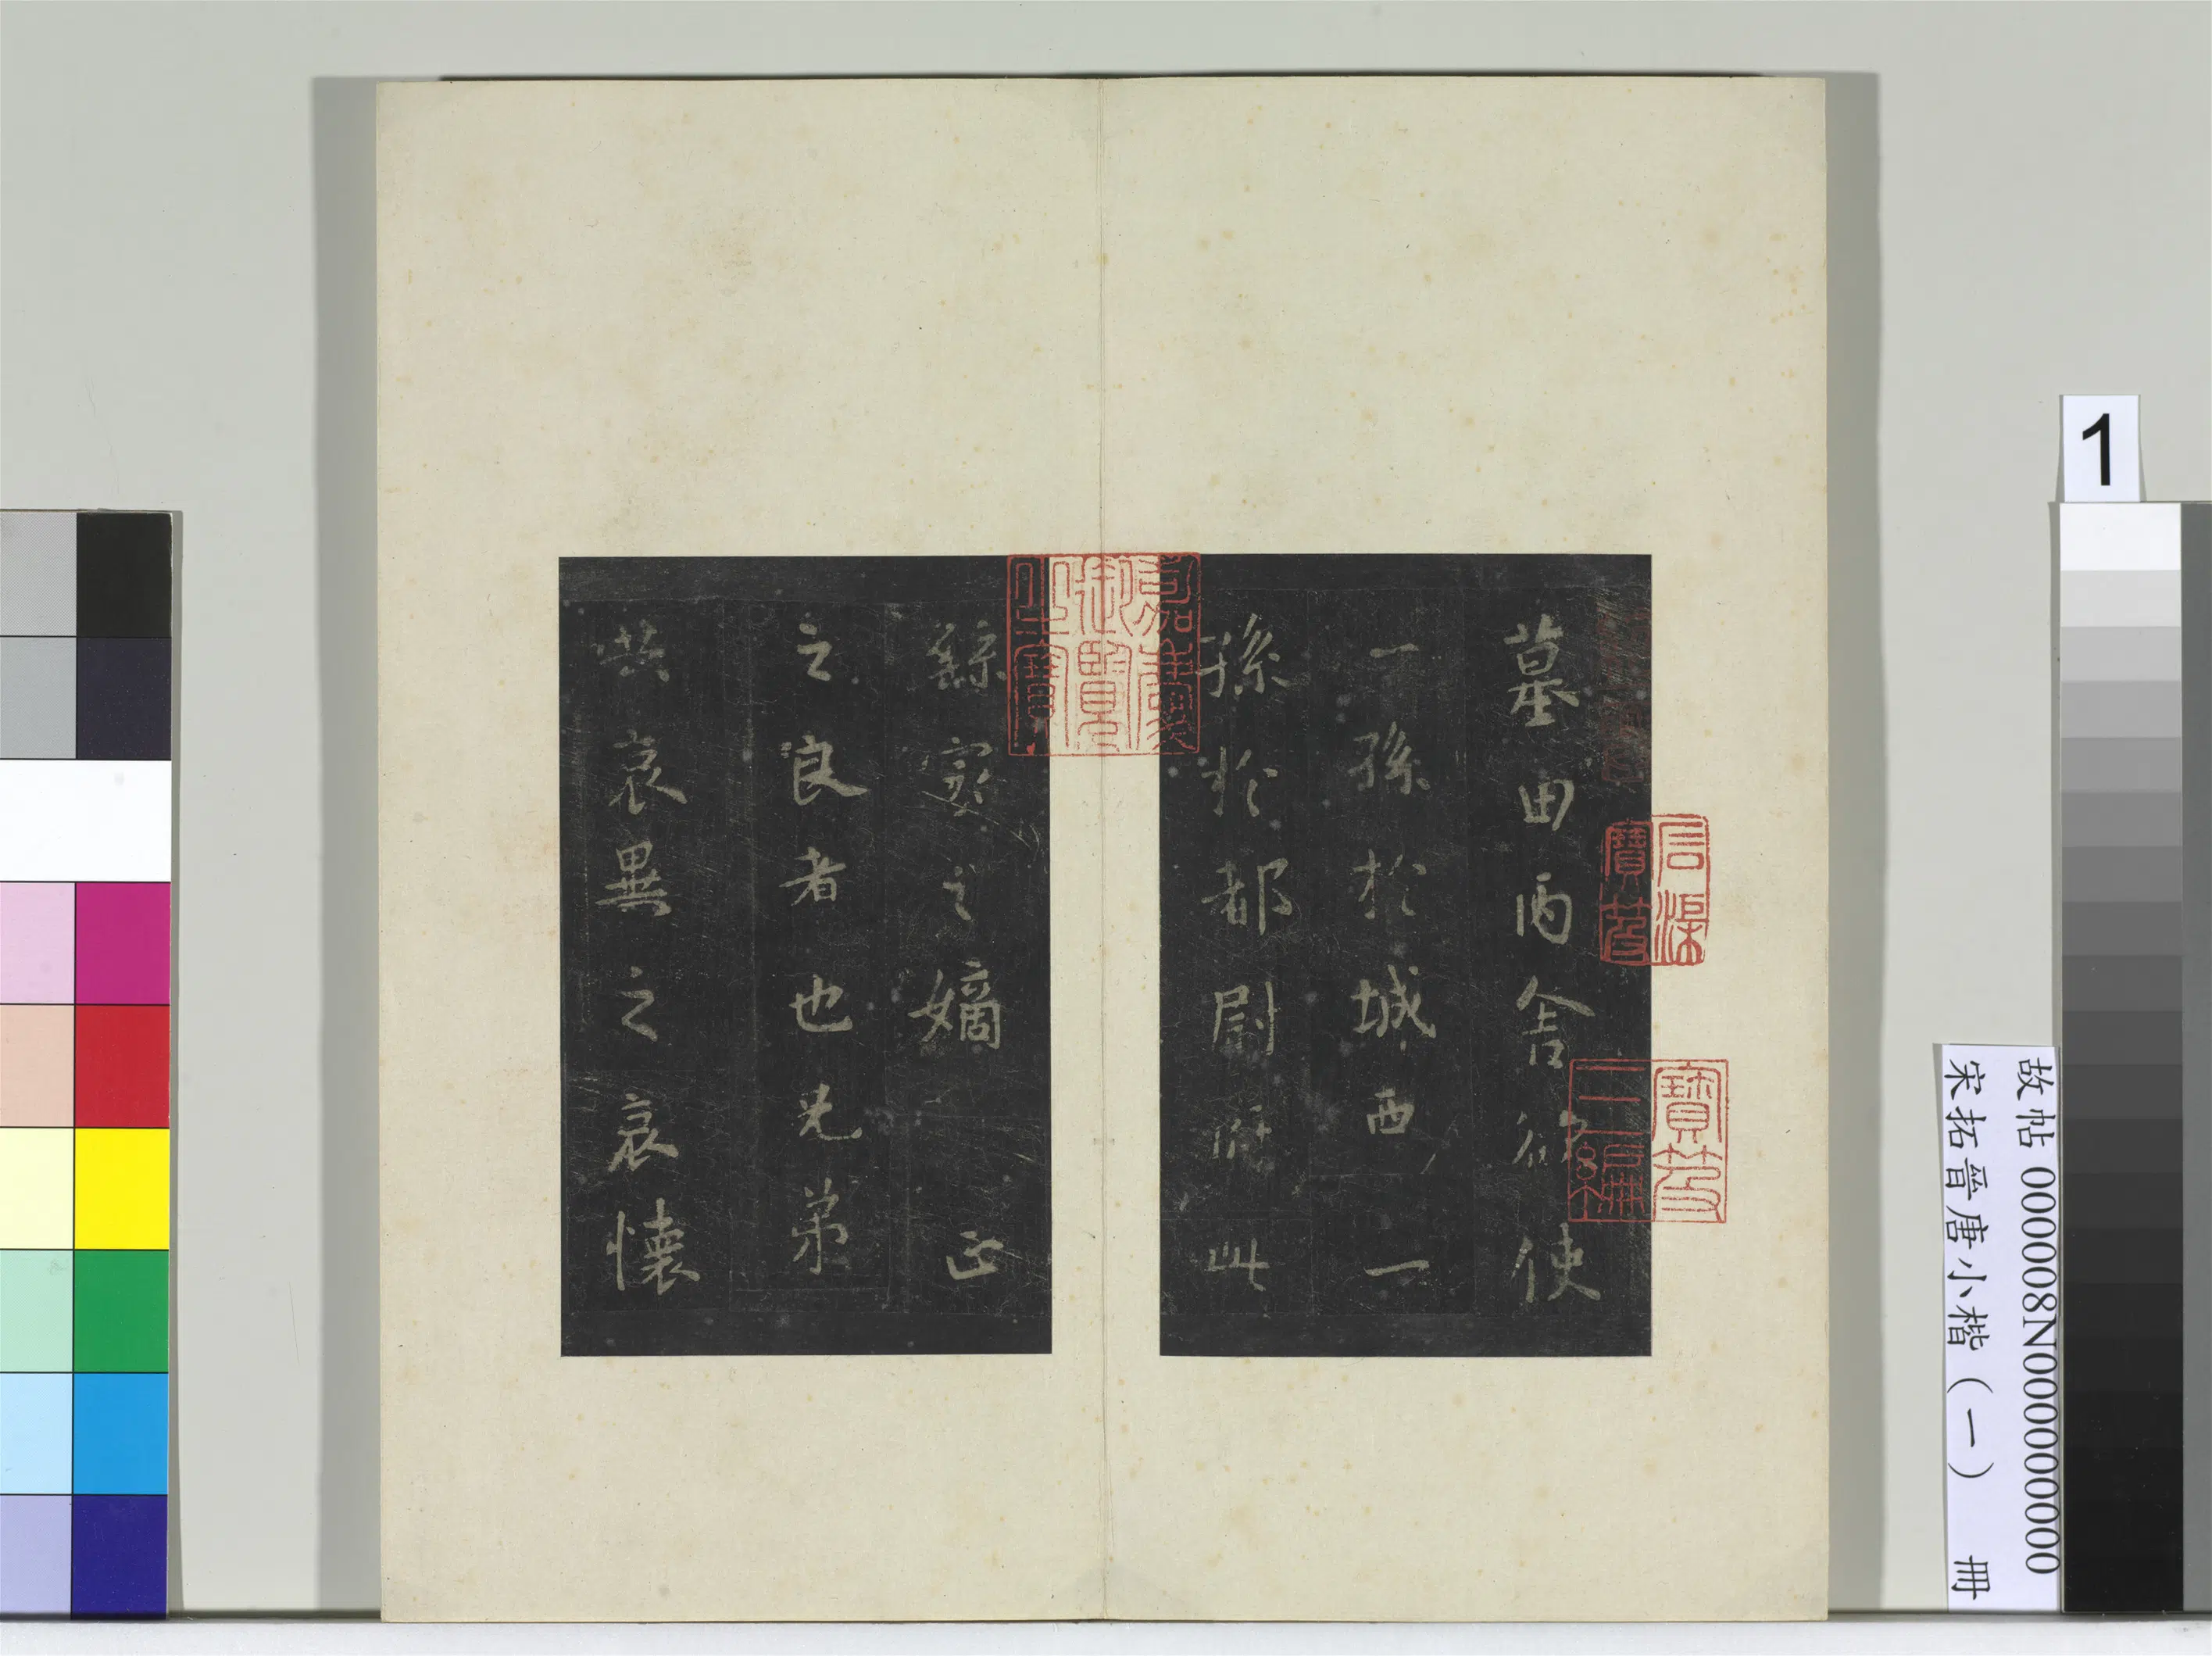 墓田丙舍欲使
一孫於城西一
孫於都尉府此
繇家之嫡正
之良者也兄弟
共哀異之哀懷
嘉慶御覽之寶
石渠寶笈
寶笈三編
1
故帖 000008N000000000
宋拓晉唐小楷（一） 冊